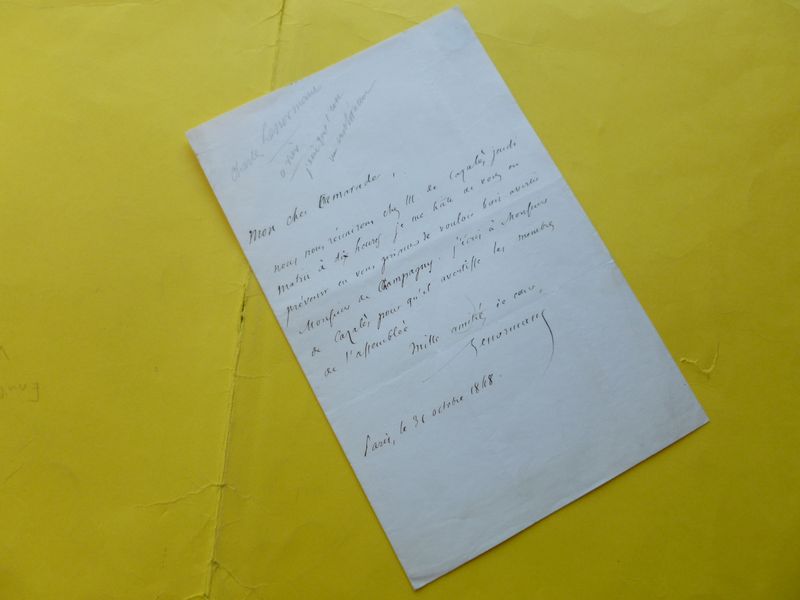 Charles Lenormant
Mon cher Camarade,
nous nous réunirons chez M. de Cazalès jeudi
matin à dix heures je me hâte de vous en
prévenir en vous priant de vouloir bien avertir
Monsieur de Champagny. J'écris à Monsieur
de Cazalès pour qu'il avertisse les membres
de l'assemblée
Mille amitiés de cœur,
Lenormant
Paris, le 31 octobre 1848.